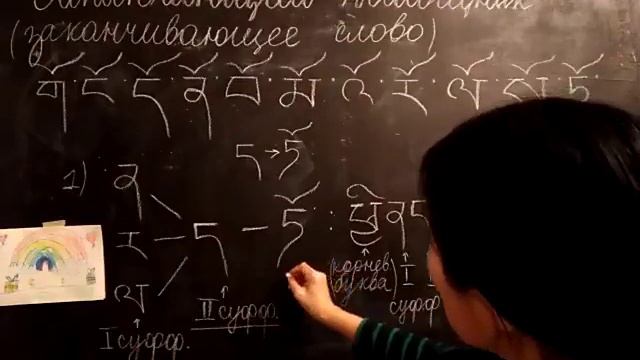 (заканчивающее слово)
གོ་ ངོ་ དོ་ ནོ་ བོ་ མོ་ འོ་ རོ་ ལོ་ སོ་ ཏོ་
ད → ཏོ
1) ན
ར — ད — ཏོ :
ལ
(корнев. буква)
I суфф.
II суфф.
I
суфф